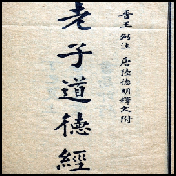 晉王弼注　唐陸德明釋文附
老子道德經